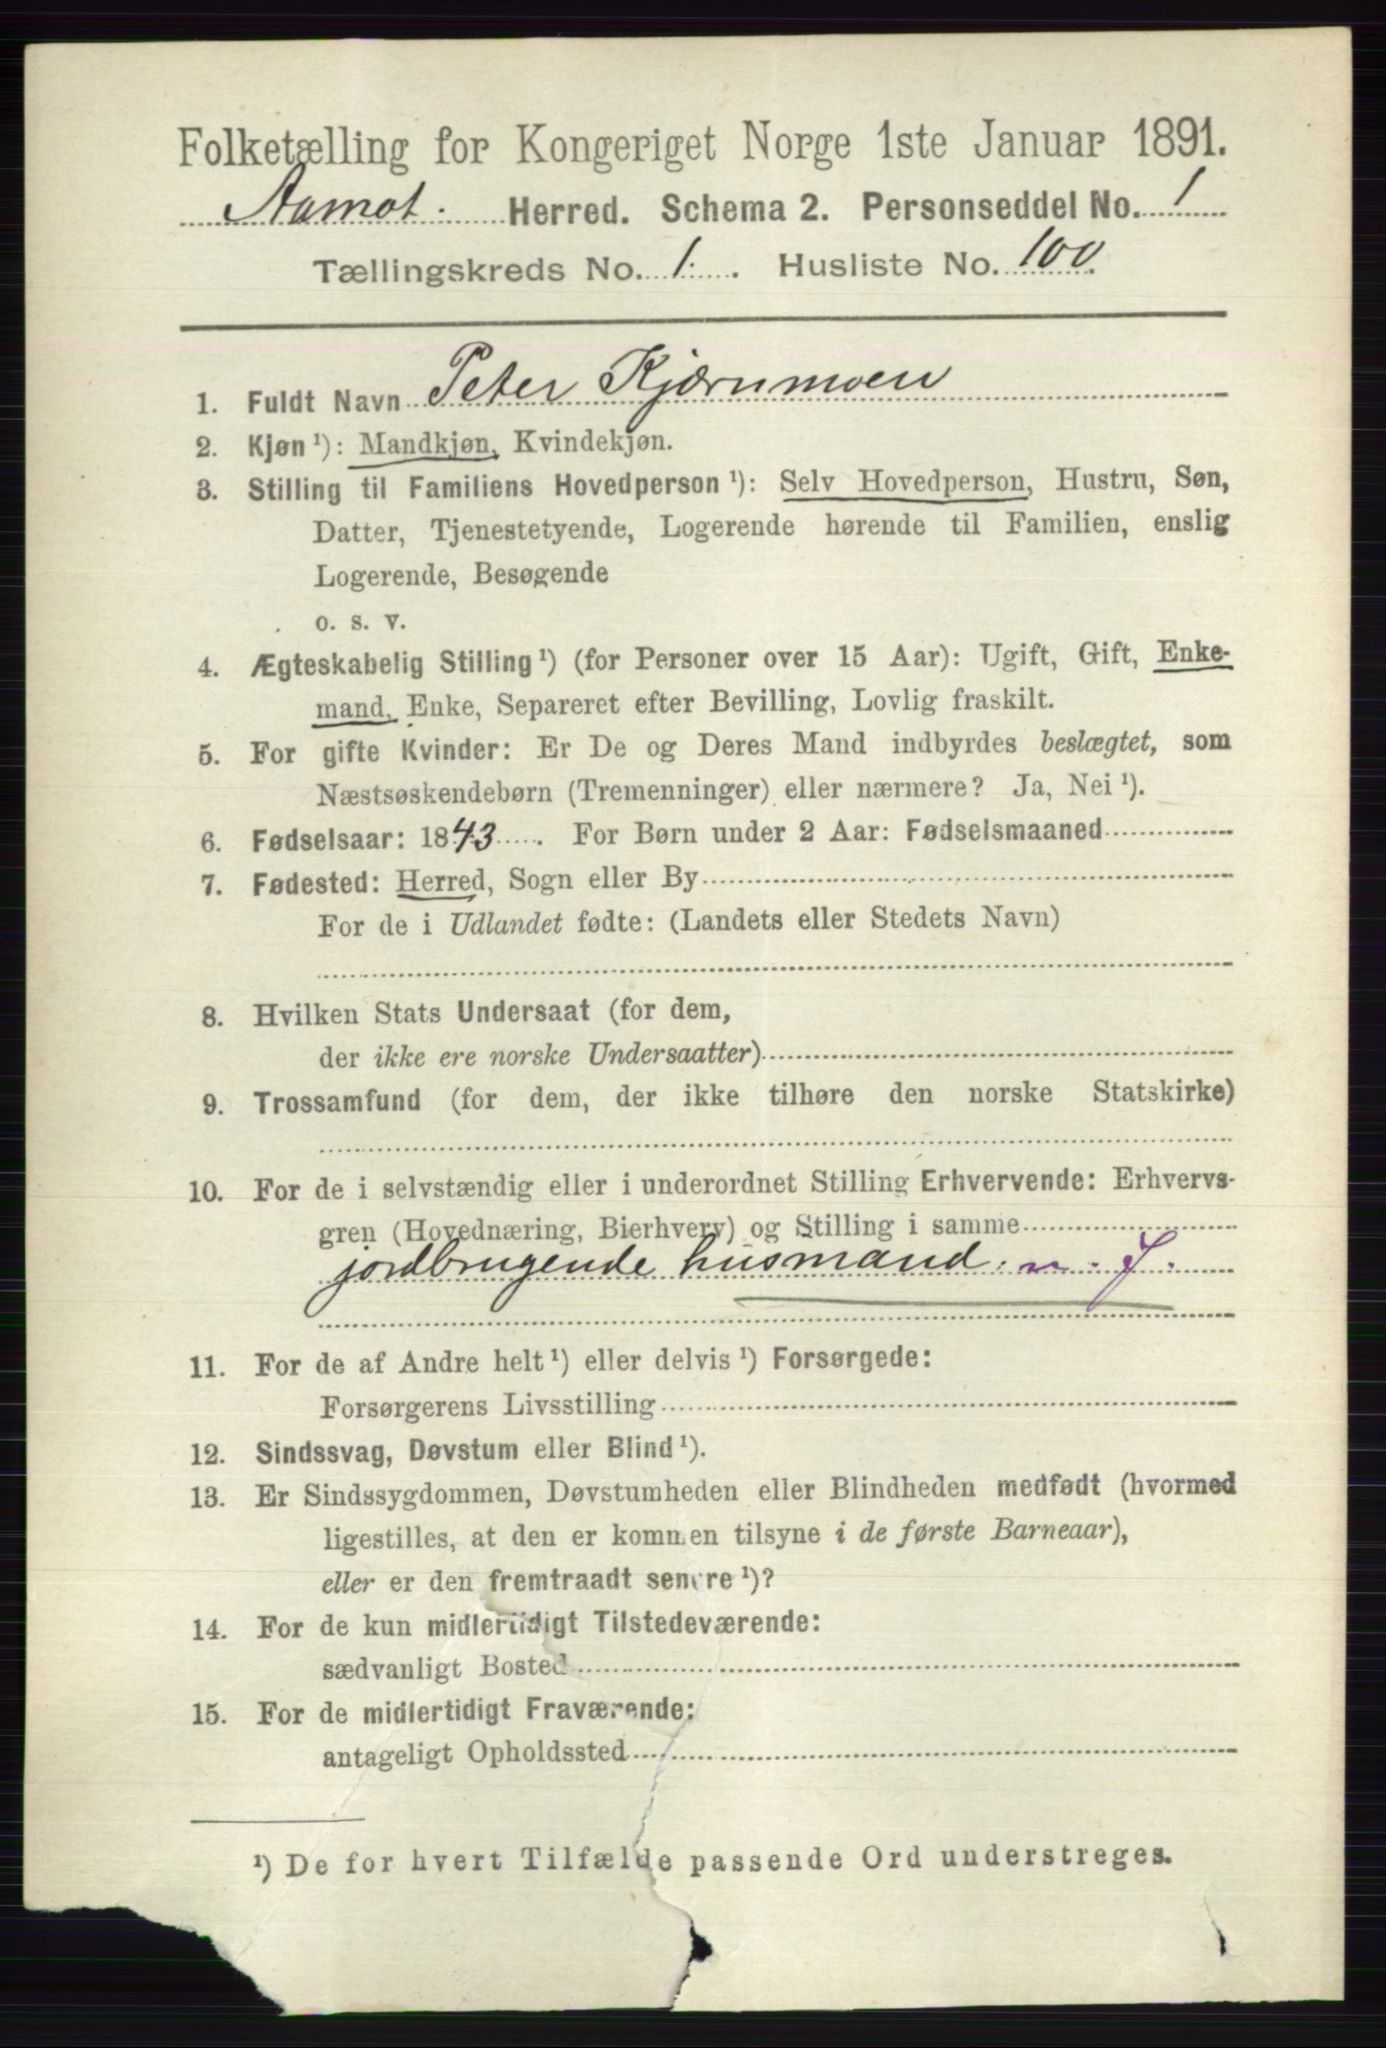 Folketælling for Kongeriget Norge 1ste Januar 1891.
Aamot. Herred. Schema 2. Personseddel No. 1
Tællingskreds No. 1. Husliste No. 100
1. Fuldt Navn Peter Kjærnmoen
2. Kjøn ¹): Mandkjøn, Kvindekjøn.
3. Stilling til Familiens Hovedperson ¹): Selv Hovedperson, Hustru, Søn,
Datter, Tjenestetyende, Logerende hørende til Familien, enslig
Logerende, Besøgende
o. s. v.
4. Ægteskabelig Stilling ¹) (for Personer over 15 Aar): Ugift, Gift, Enke-
mand, Enke, Separeret efter Bevilling, Lovlig fraskilt.
5. For gifte Kvinder: Er De og Deres Mand indbyrdes beslægtet, som
Næstsøskendebørn (Tremenninger) eller nærmere? Ja, Nei ¹).
6. Fødselsaar: 1843. For Børn under 2 Aar: Fødselsmaaned
7. Fødested: Herred, Sogn eller By
For de i Udlandet fødte: (Landets eller Stedets Navn)
8. Hvilken Stats Undersaat (for dem,
der ikke ere norske Undersaatter)
9. Trossamfund (for dem, der ikke tilhøre den norske Statskirke)
10. For de i selvstændig eller i underordnet Stilling Erhvervende: Erhvervs-
gren (Hovednæring, Bierhverv) og Stilling i samme
jordbrugende husmand. m. J.
11. For de af Andre helt ¹) eller delvis ¹) Forsørgede:
Forsørgerens Livsstilling
12. Sindssvag, Døvstum eller Blind ¹).
13. Er Sindssygdommen, Døvstumheden eller Blindheden medfødt (hvormed
ligestilles, at den er kommen tilsyne i de første Barneaar),
eller er den fremtraadt senere ¹)?
14. For de kun midlertidigt Tilstedeværende:
sædvanligt Bosted
15. For de midlertidigt Fraværende:
antageligt Opholdssted
¹) De for hvert Tilfælde passende Ord understreges.